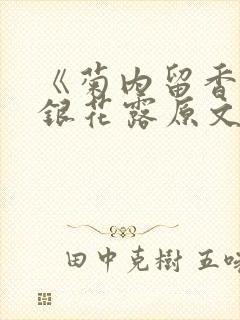 《菊内留香
銀花露原文
田中克樹 五味